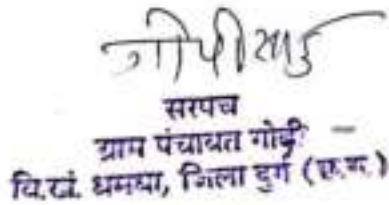 गोपी साहू
सरपंच
ग्राम पंचायत गोढ़ी
वि.खं. धमधा, जिला दुर्ग (छ.ग.)